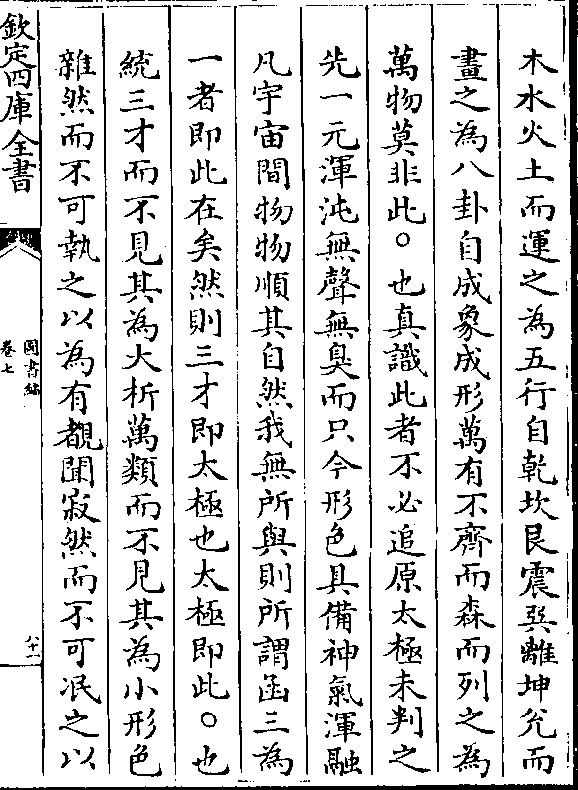 木水火土而運之為五行自乾坎艮震巽離坤兊而
畫之為八卦自成象成形萬有不齊而森而列之為
萬物莫非此○也真識此者不必追原太極未判之
先一元渾沌無聲無臭而只今形色具備神氣渾融
凡宇宙間物物順其自然我無所與則所謂函三為
一者即此在矣然則三才即太極也太極即此○也
統三才而不見其為大析萬類而不見其為小形色
雜然而不可執之以為有覩聞寂然而不可泯之以
欽定四庫全書
圖書編
卷七
六十一